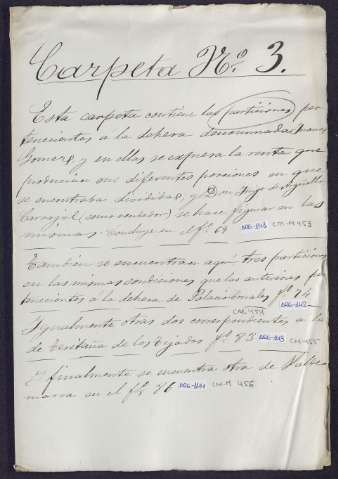 Carpeta Nº 3.
Esta carpeta contiene las particiones per
tenecientes a la dehesa denominada
Gomez, y en ellas se expresa la renta que
producian sus diferentes porciones en que
se encontraba dividida, y Don
Carvajal (como vendedor) se hace figurar en las
mismas. Concluye en el fº 68 CM-M 453
Tambien se encuentran aqui tres particiones
en las mismas condiciones que las anteriores per
tenecientes a la dehesa de fº 74
CM-M 454
Igualmente otras dos correspondientes a la
de de los fº 83 CM-M 455
Y finalmente se encuentra otra de
en el fº 86 CM-M 456